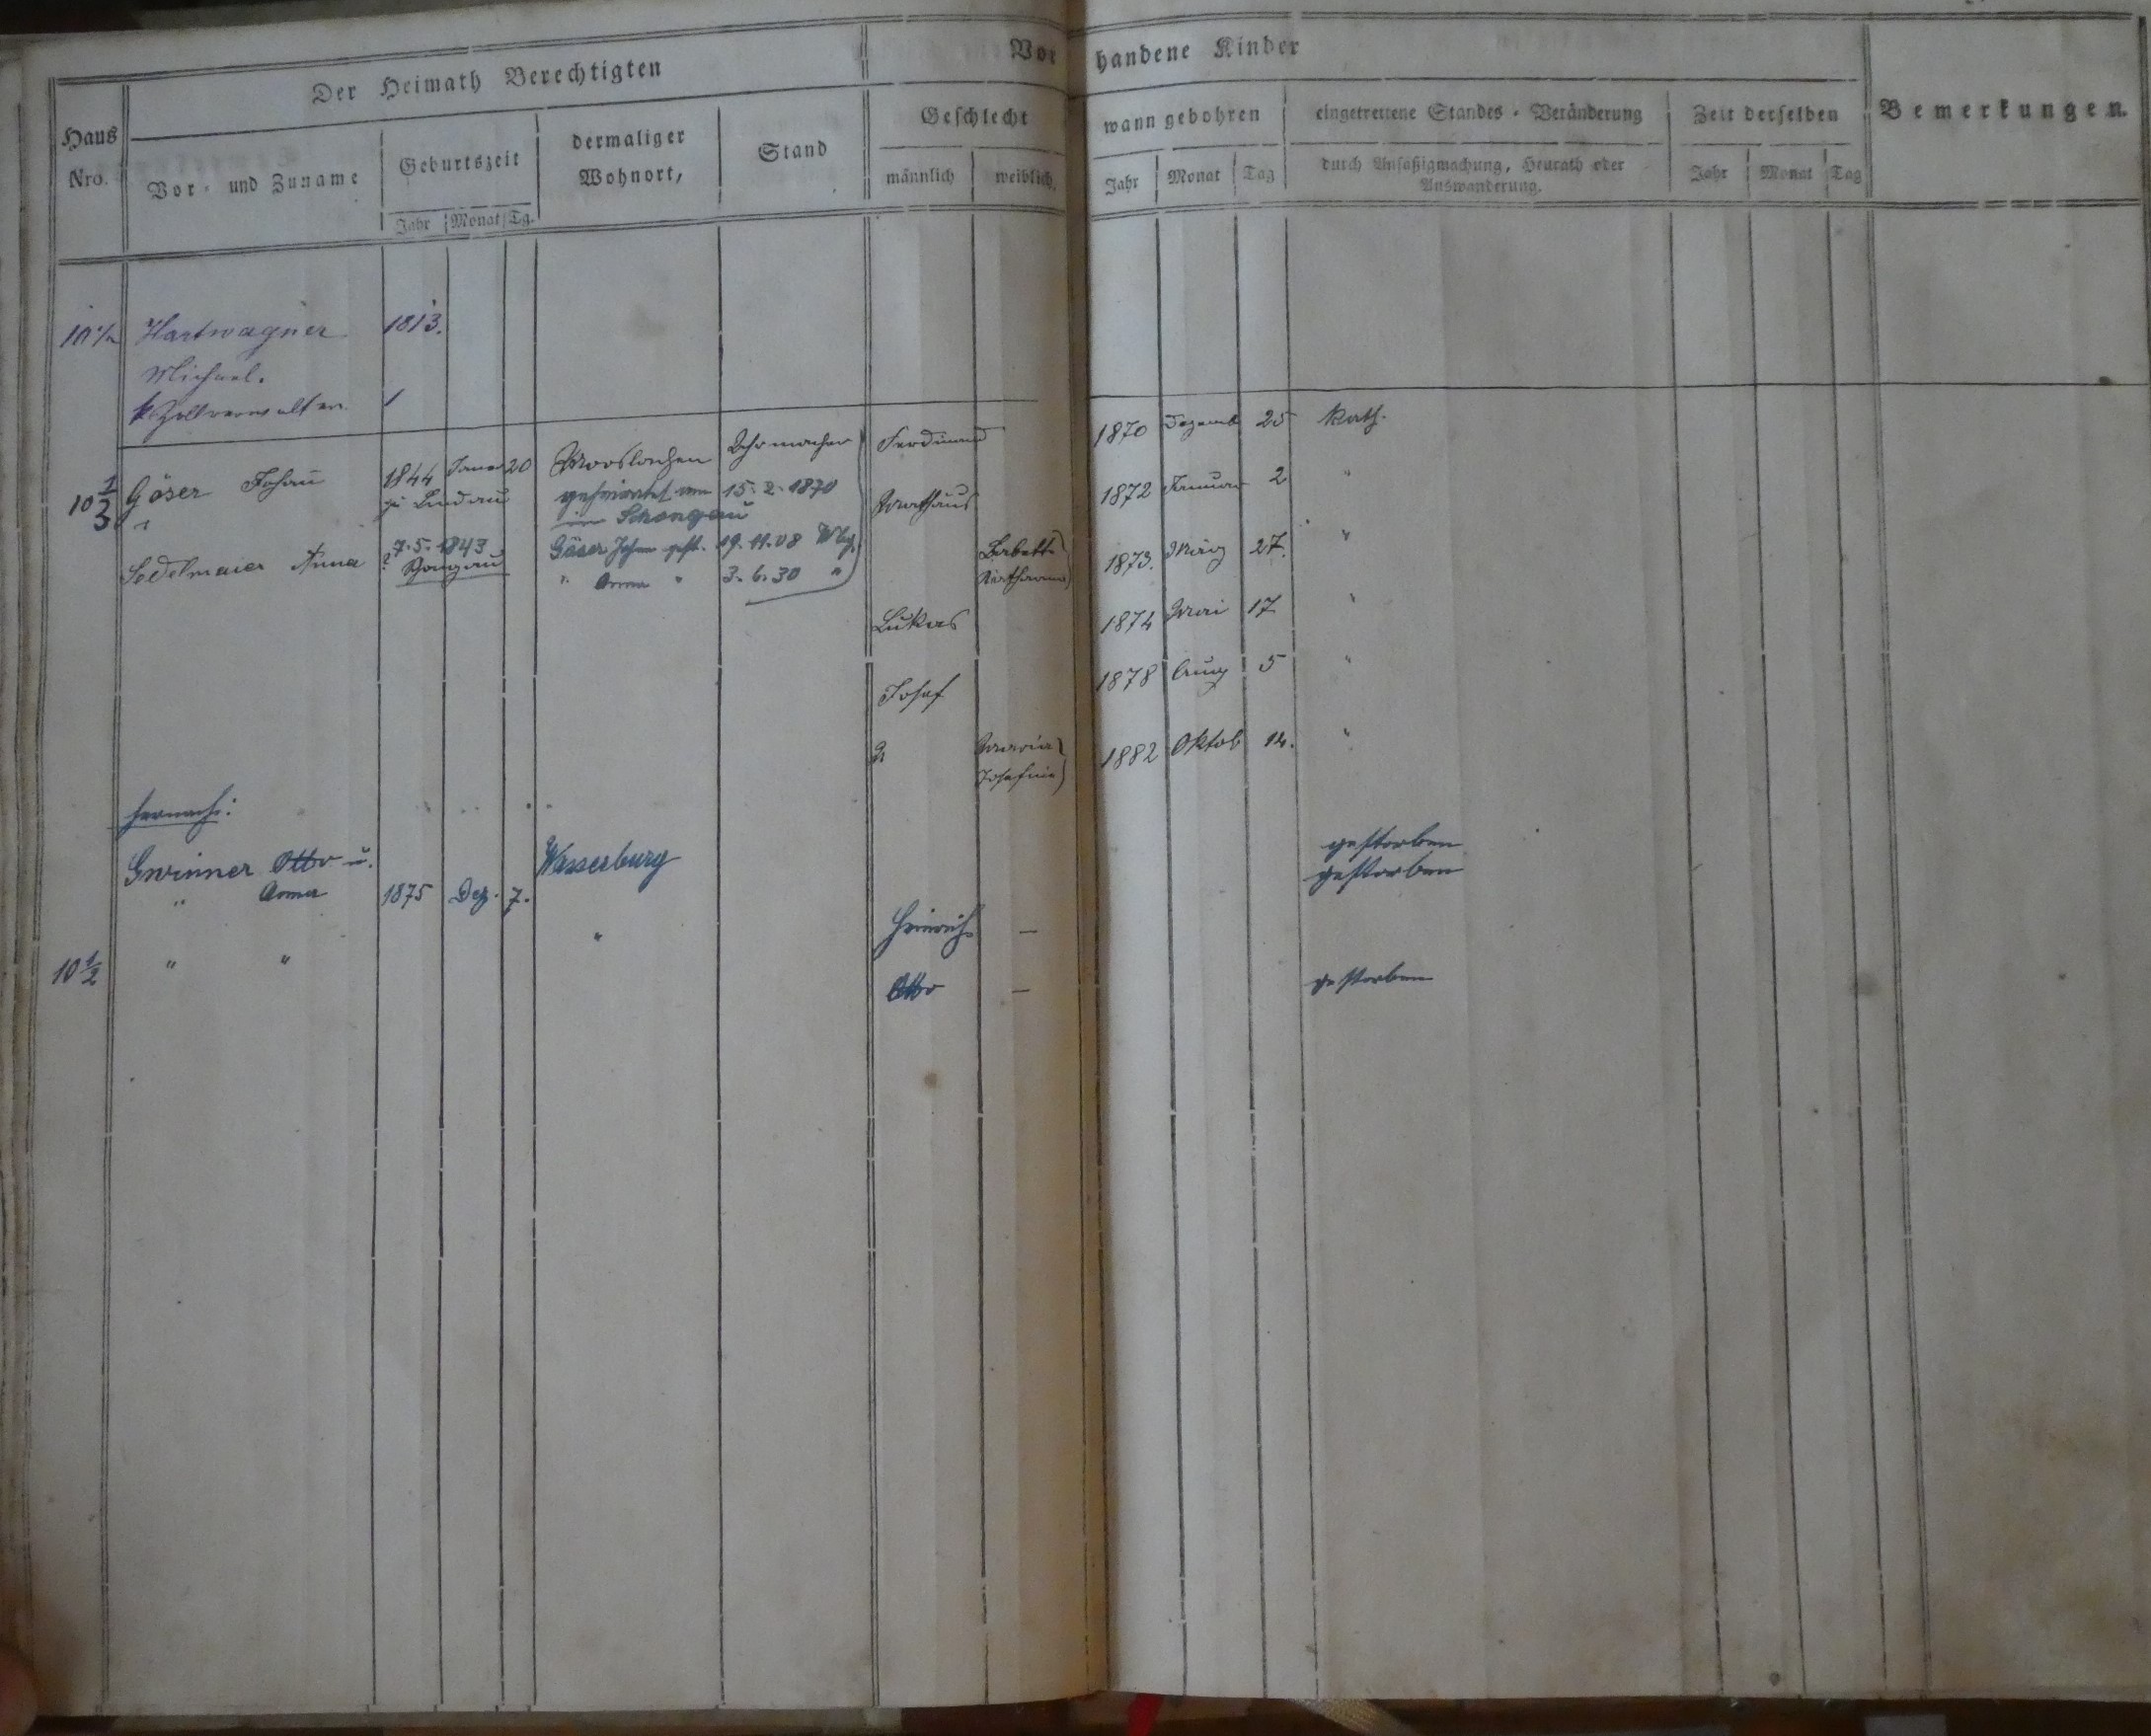 Der Heimath Berechtigten
Vorhandene Kinder
Bemerkungen.
Haus Nro.
Vor- und Zuname
Geburtszeit
Jahr Monat Tg.
dermaliger Wohnort,
Stand
Geschlecht
männlich weiblich.
wann gebohren
Jahr Monat Tag
eingetrettene Standes-Veränderung
durch Ansäßigmachung, Heurath oder
Auswanderung.
Zeit derselben
Jahr Monat Tag
10 1/2 Hartwagner 1813.
Michael.
k. Zollverwalter.
10 1/3 Göser Johann 1844 Januar 20 Mooslachen Uhrmacher Ferdinand 1870 Dezemb 25 Kath.
zu Lindau geheirathet am 15.2.1870 Mathäus 1872 Januar 2 "
in Schongau
Sedelmaier Anna 7.5.1843 Göser Johann gest. 19.11.08 Wbg. Babette 1873. März 27. "
Schongau " Anna " 3.6.30 " Katharina
Lukas 1874 Mai 17 "
Josef 1878 Aug 5 "
Maria 1882 Oktob 14. "
Josefine
hernach:
Gwinner Otto u. Wasserburg gestorben
" Anna 1875 Dez. 7. gestorben
" Heinrich –
10 1/2 " " Otto – gestorben